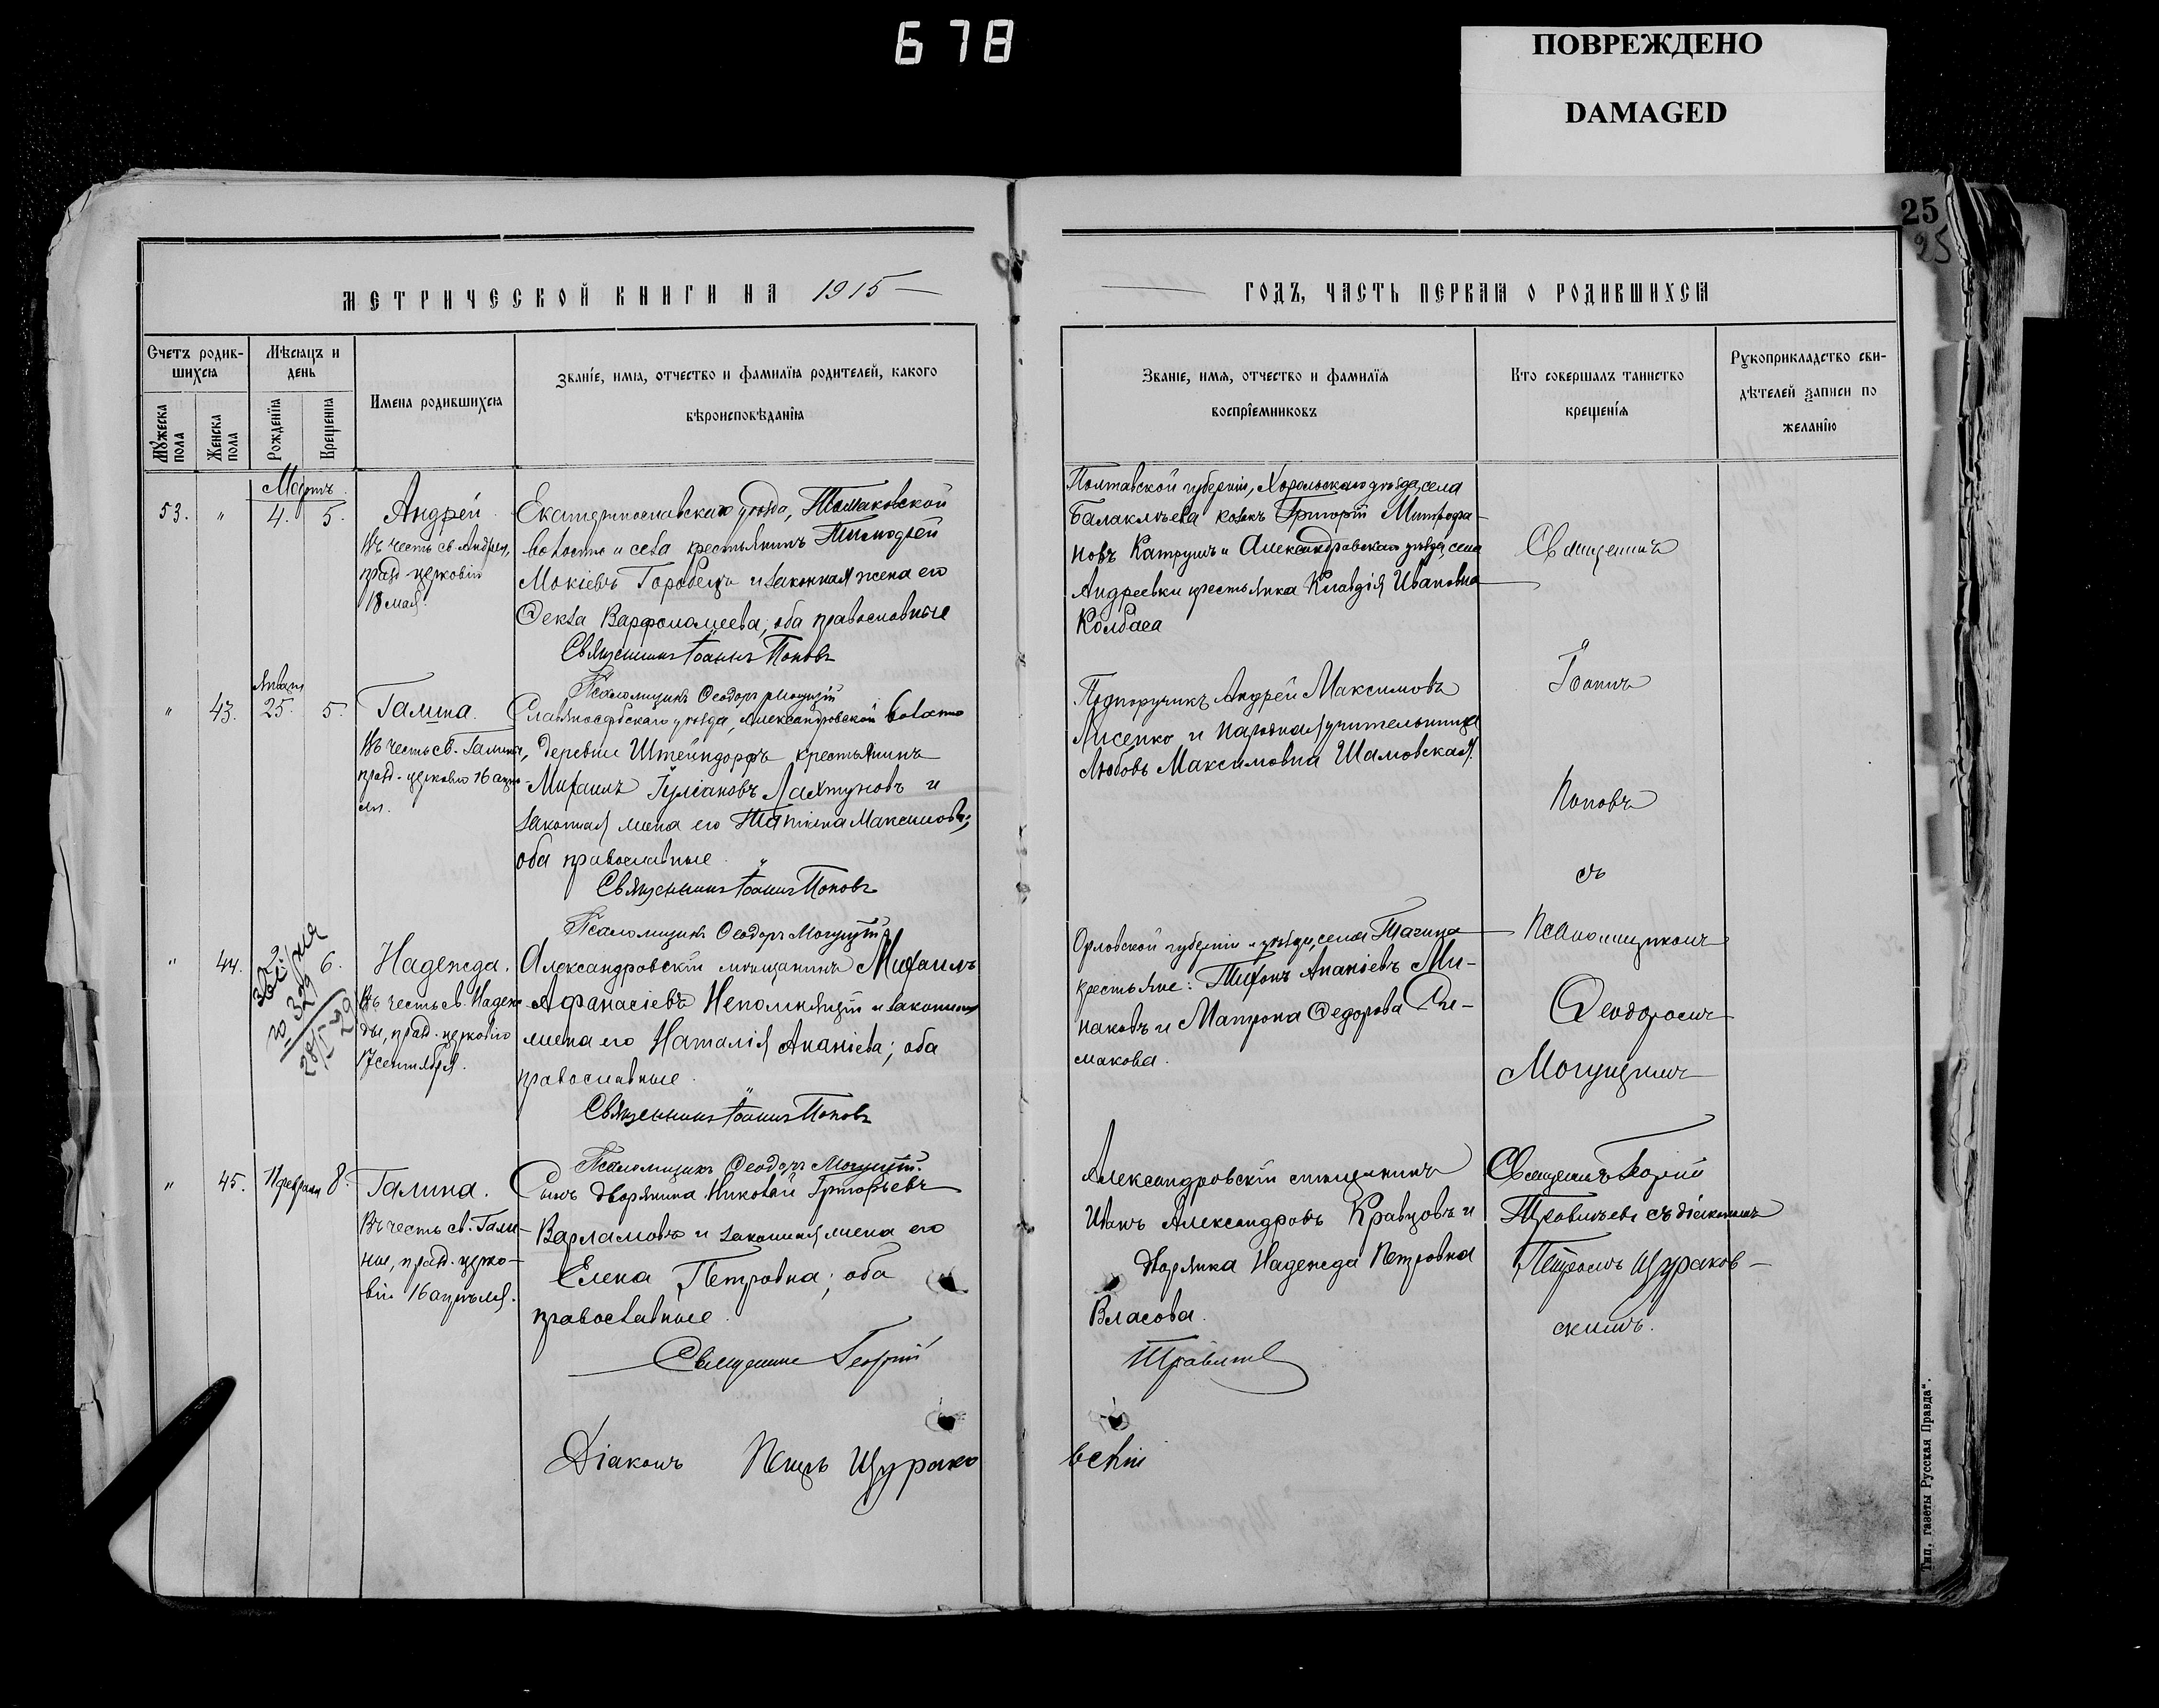 678
ПОВРЕЖДЕНО
DAMAGED
25
25
МЕТРИЧЕСКОЙ КНИГИ НА 1915
ГОДЪ, ЧАСТЬ ПЕРВАЯ О РОДИВШИХСЯ
Счетъ родив-
шихся
Мѣсяцъ и
день
Мужеска
пола
Женска
пола
Рожденія
Крещенія
Имена родившихся
Званіе, имя, отчество и фамилія родителей, какого
вѣроисповѣданія
Званіе, имя, отчество и фамилія
воспріемниковъ
Кто совершалъ таинство
крещенія
Рукоприкладство сви-
дѣтелей записи по
желанію
Мартъ
53. " 4. 5.
Андрей
Въ честь св. Андрея,
празд. церковію
18 мая.
Екатеринославскаго уѣзда, Томаковской
волости и села крестьянинъ Тимоѳей
Мокіевъ Горобецъ и законная жена его
Ѳекла Варфоломеева, оба православные
Священникъ Іоаннъ Поповъ
Псаломщикъ Ѳеодоръ Могущій
Полтавской губерніи, Хорольскаго уѣзда, села
Балаклѣева козакъ Григорій Митрофа-
новъ Катрушъ и Александровскаго уѣзда, села
Андреевки крестьянка Клавдія Ивановна
Колбаса
Священникъ
Іоаннъ
Поповъ
съ
Псаломщикомъ
Ѳеодоромъ
Могущимъ
Январ
" 43. 25. 5.
Галина.
Въ честь св. Галины,
празд. церковію 16 апрѣ-
ля.
Славяносербскаго уѣзда, Александровской волости
деревни Штейндорфъ крестьянинъ
Михаилъ Іуліановъ Лахтуновъ и
законная жена его Татіана Максимова;
оба православные.
Священникъ Іоаннъ Поповъ
Псаломщикъ Ѳеодоръ Могущій
Подпоручикъ Андрей Максимовъ
Лисенко и народная учительница
Любовь Максимовна Шамовская.
" 44. 2. 6.
329
28/I 29
Надежда.
Въ честь св. Надеж-
ды, празд. церковію
17 сентября.
Александровскій мѣщанинъ Михаилъ
Афанасіевъ Непомнящій и законная
жена его Наталія Ананіева; оба
православные.
Священникъ Іоаннъ Поповъ
Псаломщикъ Ѳеодоръ Могущій.
Орловской губерніи и уѣзда, села Тагина
крестьяне: Тихонъ Ананіевъ Ми-
наковъ и Матрона Ѳедорова
макова.
" 45. 11 февраля 8.
Галина.
Въ честь св. Гали-
ны, празд. церко-
вію 16 апрѣля.
Сынъ дворянина Николай Григорьевъ
Варламовъ и законная жена его
Елена Петровна; оба
православные.
Священникъ Георгій
Діаконъ Петръ Щурако
Александровскій мѣщанинъ
Иванъ Александровъ Кравцовъ и
дворянка Надежда Петровна
Власова.
вскій
Священникъ Георгій
съ діакономъ
Петромъ Щураков-
скимъ.
Тип. газеты Русская Правда".